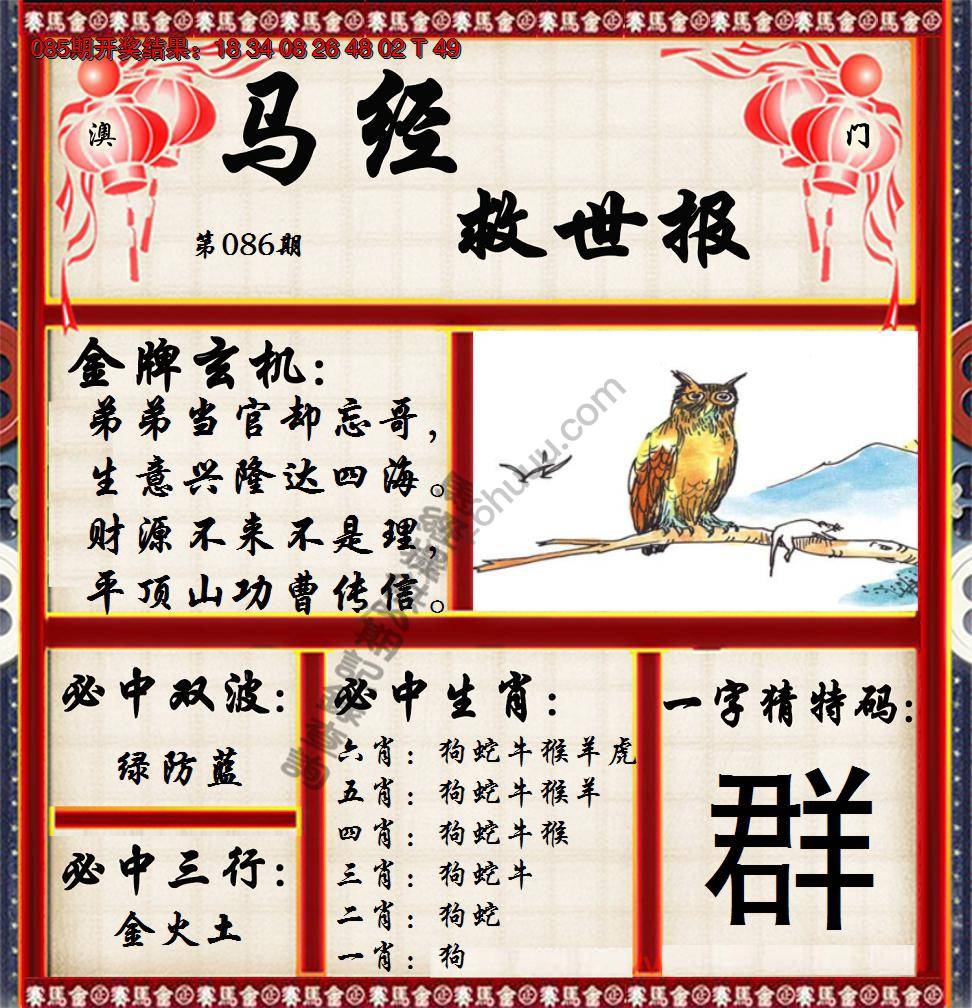 085期开奖结果：18 34 08 26 48 02 T 49
澳
门
马经
救世报
第086期
金牌玄机：
弟弟当官却忘哥，
生意兴隆达四海。
财源不来不是理，
平顶山功曹传信。
必中双波：
绿防蓝
必中三行：
金火土
必中生肖：
六肖：狗蛇牛猴羊虎
五肖：狗蛇牛猴羊
四肖：狗蛇牛猴
三肖：狗蛇牛
二肖：狗蛇
一肖：狗
一字猜特码：
群